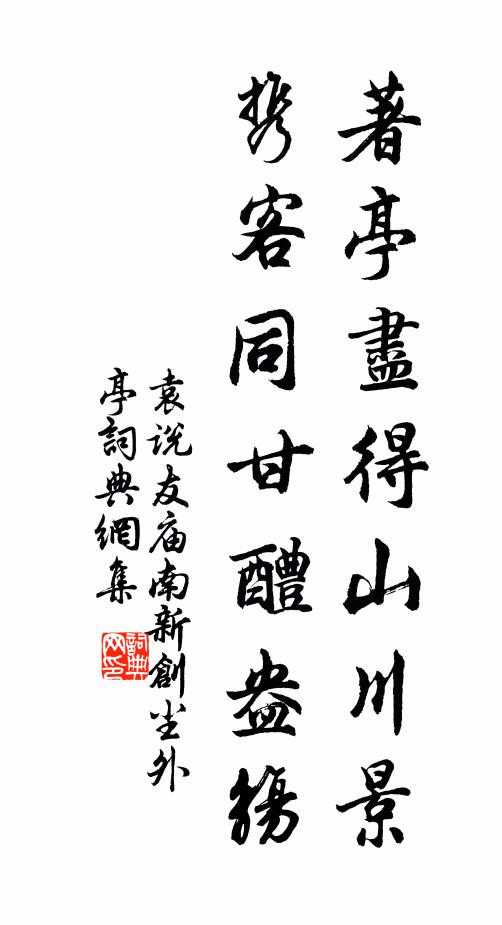 著亭盡得山川景
携客同甘醴盎觴
袁说友庙南新創尘外
亭詞典網集
詞典网印